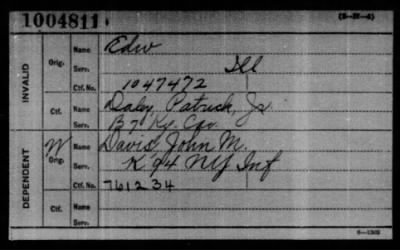 1004811
(3-21-4)
INVALID
Orig.
Name Edw
Serv. Ill
Ctf. No. 1047472
Ctf.
Name Daley, Patrick, Jr.
Serv. B 7 Ky. Cav.
DEPENDENT
W Orig.
Name Davis, John M.
Serv. K 94 NY Inf
Ctf. No. 761234
Ctf.
Name
Serv.